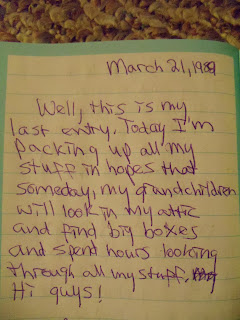 March 21, 1989
Well, this is my
last entry. Today I'm
packing up all my
stuff in hopes that
someday, my grandchildren
will look in my attic
and find big boxes
and spent hours looking
through all my stuff.
Hi guys!